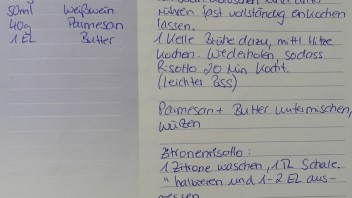 50ml Weißwein
40g Parmesan
1 EL Butter
rühren fast vollständig einkochen
lassen.
1 Kelle Brühe dazu, mittl. Hitze
kochen. Wiederholen, sodass
Risotto 20 Min kocht.
(leichter Biss)
Parmesan + Butter untermischen,
würzen
Zitronenrisotto:
1 Zitrone waschen, 1 TL Schale.
" halbieren und 1-2 EL aus-